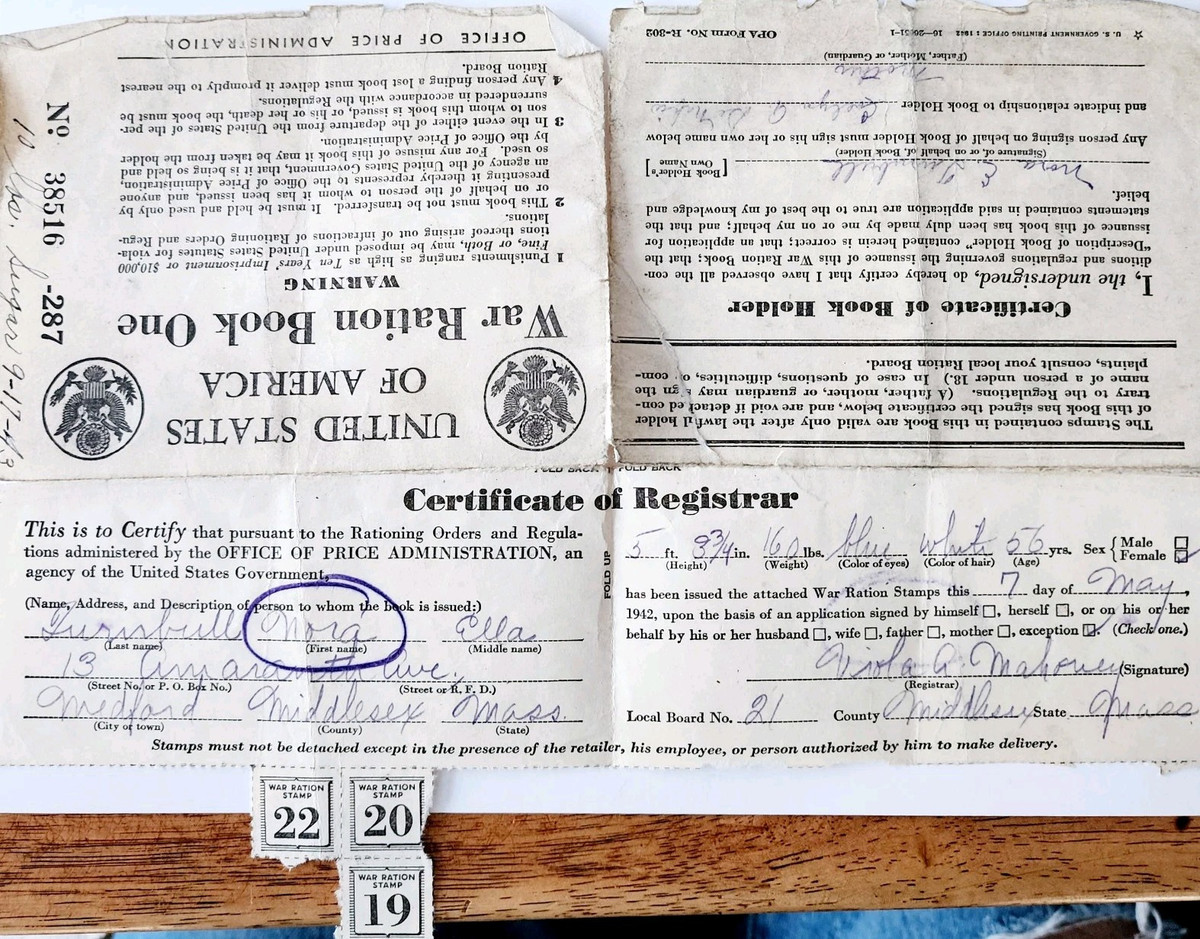 UNITED STATES
OF AMERICA
War Ration Book One
WARNING
1 Punishments ranging as high as Ten Years' Imprisonment or $10,000
Fine, or Both, may be imposed under United States Statutes for viola-
tions thereof arising out of infractions of Rationing Orders and Regu-
lations.
2 This book must not be transferred. It must be held and used only by
or on behalf of the person to whom it has been issued, and anyone
presenting it thereby represents to the Office of Price Administration,
an agency of the United States Government, that it is being so held and
so used. For any misuse of this book it may be taken from the holder
by the Office of Price Administration.
3 In the event either of the departure from the United States of the per-
son to whom this book is issued, or his or her death, the book must be
surrendered in accordance with the Regulations.
4 Any person finding a lost book must deliver it promptly to the nearest
Ration Board.
OFFICE OF PRICE ADMINISTRATION
No. 38516 -287
10 lbs. Sugar 9-17-43
The Stamps contained in this Book are valid only after the lawful holder
of this Book has signed the certificate below, and are void if detached con-
trary to the Regulations. (A father, mother, or guardian may sign the
name of a person under 18.) In case of questions, difficulties, or com-
plaints, consult your local Ration Board.
Certificate of Book Holder
I, the undersigned, do hereby certify that I have observed all the con-
ditions and regulations governing the issuance of this War Ration Book; that the
"Description of Book Holder" contained herein is correct; that an application for
issuance of this book has been duly made by me or on my behalf; and that the
statements contained in said application are true to the best of my knowledge and
belief.
[Book Holder's Own Name] Nora E. Turnbull
(Signature of, or on behalf of, Book Holder)
Any person signing on behalf of Book Holder must sign his or her own name below
and indicate relationship to Book Holder Evelyn A.
Mother
(Father, Mother, or Guardian)
☆ U. S. GOVERNMENT PRINTING OFFICE : 1942 OPA Form No. R-302
FOLD BACK FOLD BACK
Certificate of Registrar
This is to Certify that pursuant to the Rationing Orders and Regula-
tions administered by the OFFICE OF PRICE ADMINISTRATION, an
agency of the United States Government,
(Name, Address, and Description of person to whom the book is issued:)
Turnbull Nora Ella
(Last name) (First name) (Middle name)
13 Amaranth Ave.
(Street No. or P. O. Box No.) (Street or R. F. D.)
Medford Middlesex Mass.
(City or town) (County) (State)
FOLD UP
5 ft. 3 3/4 in. 160 lbs. blue white 56 yrs. Sex { Male
Female
(Height) (Weight) (Color of eyes) (Color of hair) (Age)
has been issued the attached War Ration Stamps this 7 day of May,
1942, upon the basis of an application signed by himself ☐, herself ☐, or on his or her
behalf by his or her husband ☐, wife ☐, father ☐, mother ☐, exception ☑. (Check one.)
Viola A. Mahoney (Signature)
(Registrar)
Local Board No. 21 County Middlesex State Mass
Stamps must not be detached except in the presence of the retailer, his employee, or person authorized by him to make delivery.
WAR RATION
STAMP
22
WAR RATION
STAMP
20
WAR RATION
STAMP
19